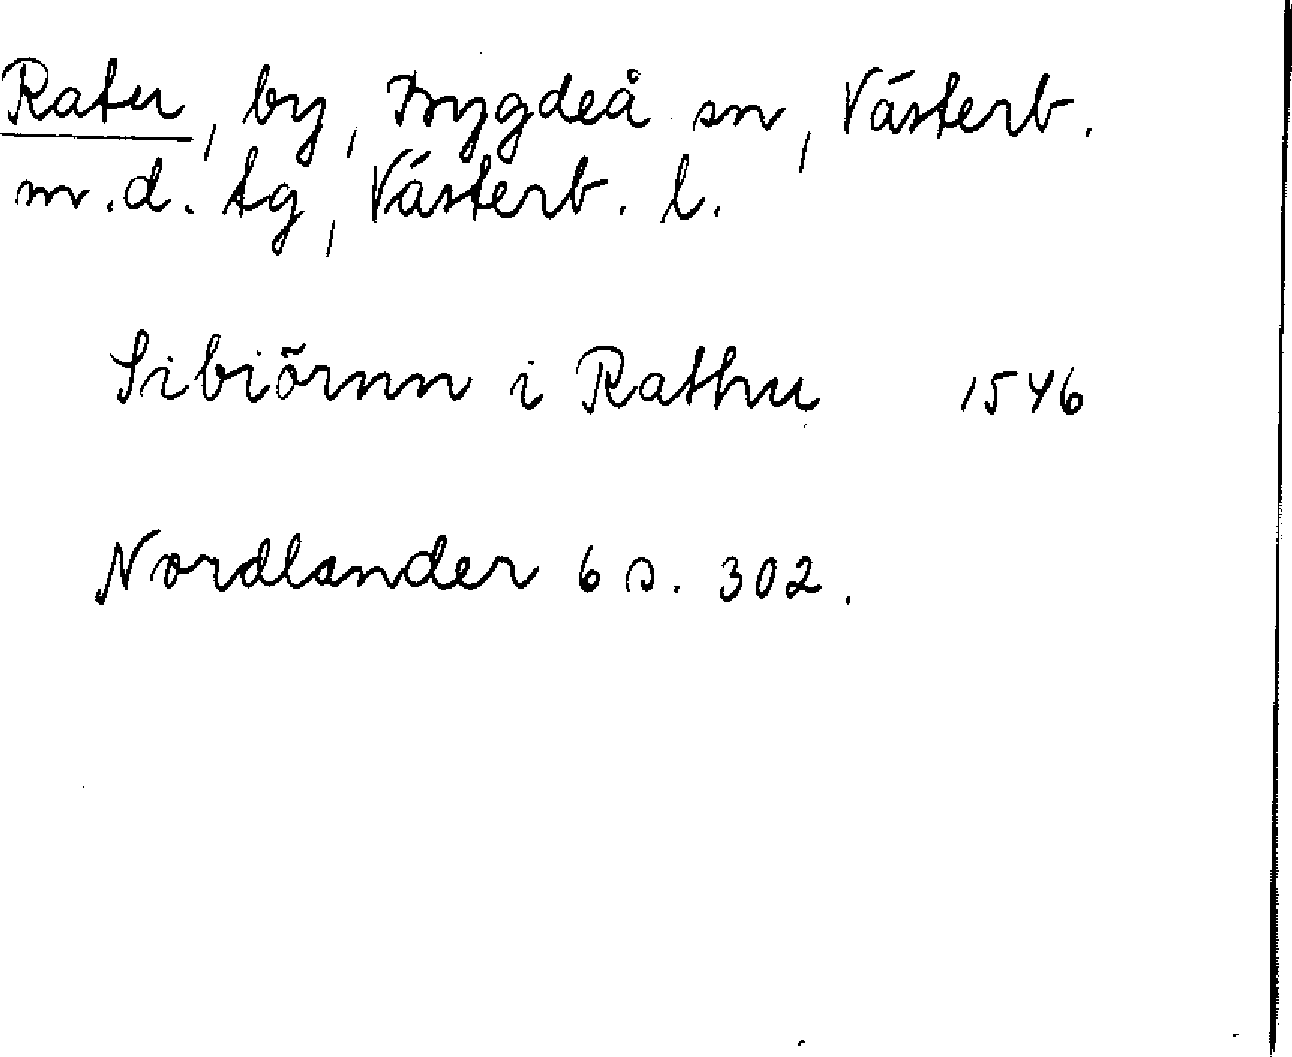 Ratu, by, Bygdeå sn, Västerb.
m.d. tg, Västerb. l.
Sibiörnn i Rathu 1546
Nordlander 6 s. 302.